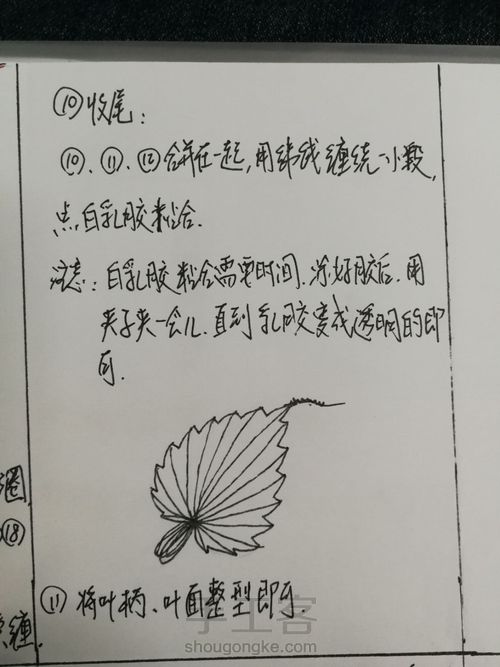 ⑩收尾：
⑩、⑪、⑫合并在一起，用纬线缠绕一小段，
点白乳胶粘合.
注意：白乳胶粘合需要时间.涂好胶后.用
夹子夹一会儿.直到乳胶变成透明的即
可.
圈
⑱
⑪ 将叶柄、叶面整型即可.
缠
手工客
shougongke.com